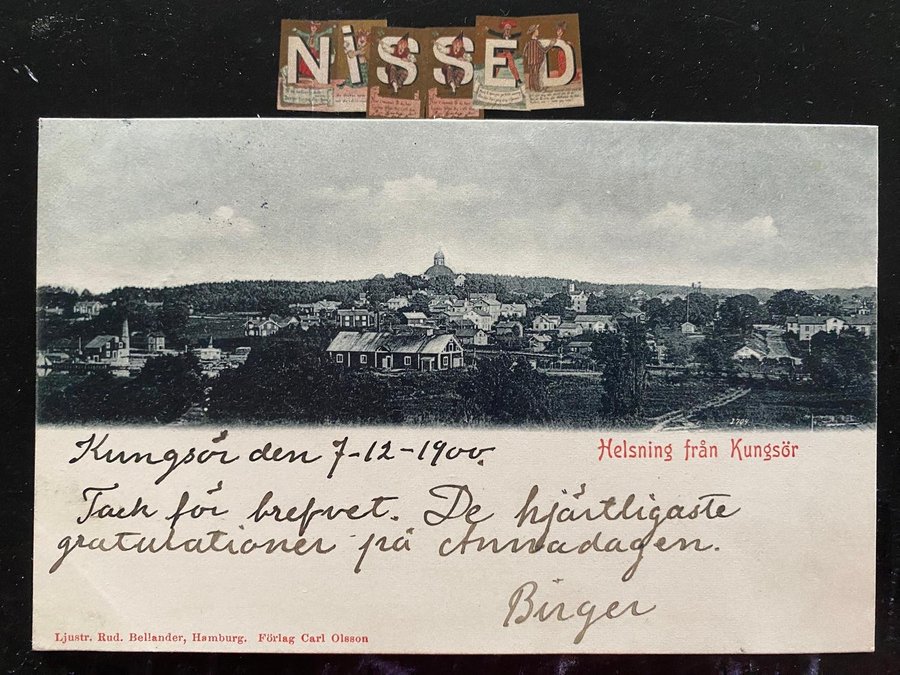 NISSED
Kungsör den 7-12-1900.
Helsning från Kungsör
Tack för brefvet. De hjärtligaste
gratulationer på Annadagen.
Birger
Ljustr. Rud. Bellander, Hamburg. Förlag Carl Olsson